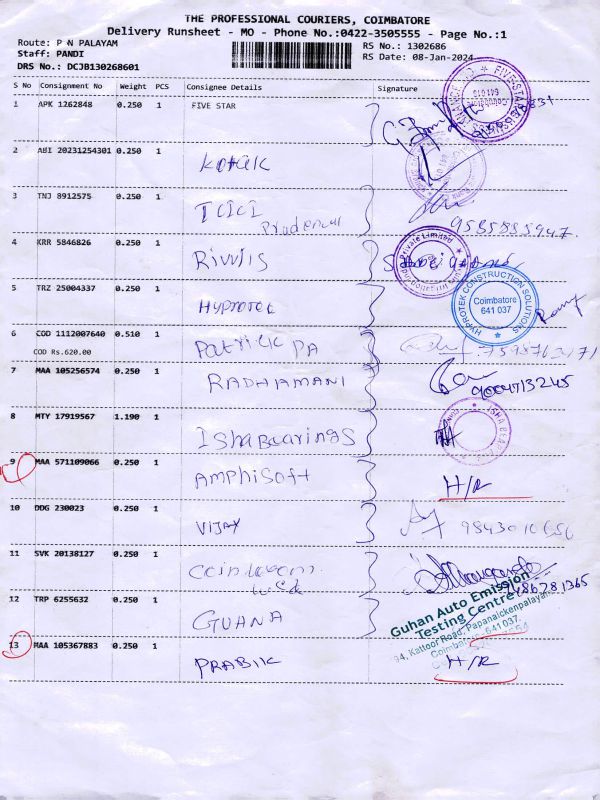 THE PROFESSIONAL COURIERS, COIMBATORE
Delivery Runsheet - MO - Phone No.:0422-3505555 - Page No.:1
Route: P N PALAYAM
RS No.: 1302686
Staff: PANDI
RS Date: 08-Jan-2024
DRS No.: DCJB130268601
S No Consignment No Weight PCS Consignee Details Signature
1 APK 1262848 0.250 1 FIVE STAR
2 ABI 20231254301 0.250 1 Kotak
3 TNJ 8912575 0.250 1 ICICI
Prudencial
9585885947
4 KRR 5846826 0.250 1 Rivulis
5 TRZ 25004337 0.250 1 Hyprotek
HYPROTEK CONSTRUCTION SOLUTIONS
Coimbatore
641 037
6 COD 1112007640 0.510 1 Patrick PA
COD Rs.620.00
7 MAA 105256574 0.250 1 RADHAMANI
9004713245
8 MTY 17919567 1.190 1 Isha Bearings
9 MAA 571109066 0.250 1 Amphisoft H/R
10 DDG 230023 0.250 1 VIJAY 9843010656
11 SVK 20138127 0.250 1
12 TRP 6255632 0.250 1 GUHANA
Guhan Auto Emission
Testing Centre
94, Kattoor Road, Papanaickenpalayam
Coimbatore-641 037.
13 MAA 105367883 0.250 1 PRABIK H/R